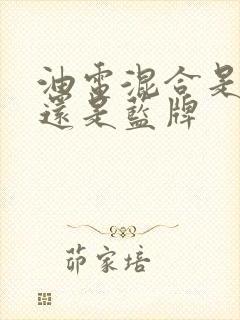 油電混合是
還是藍牌
茆家培